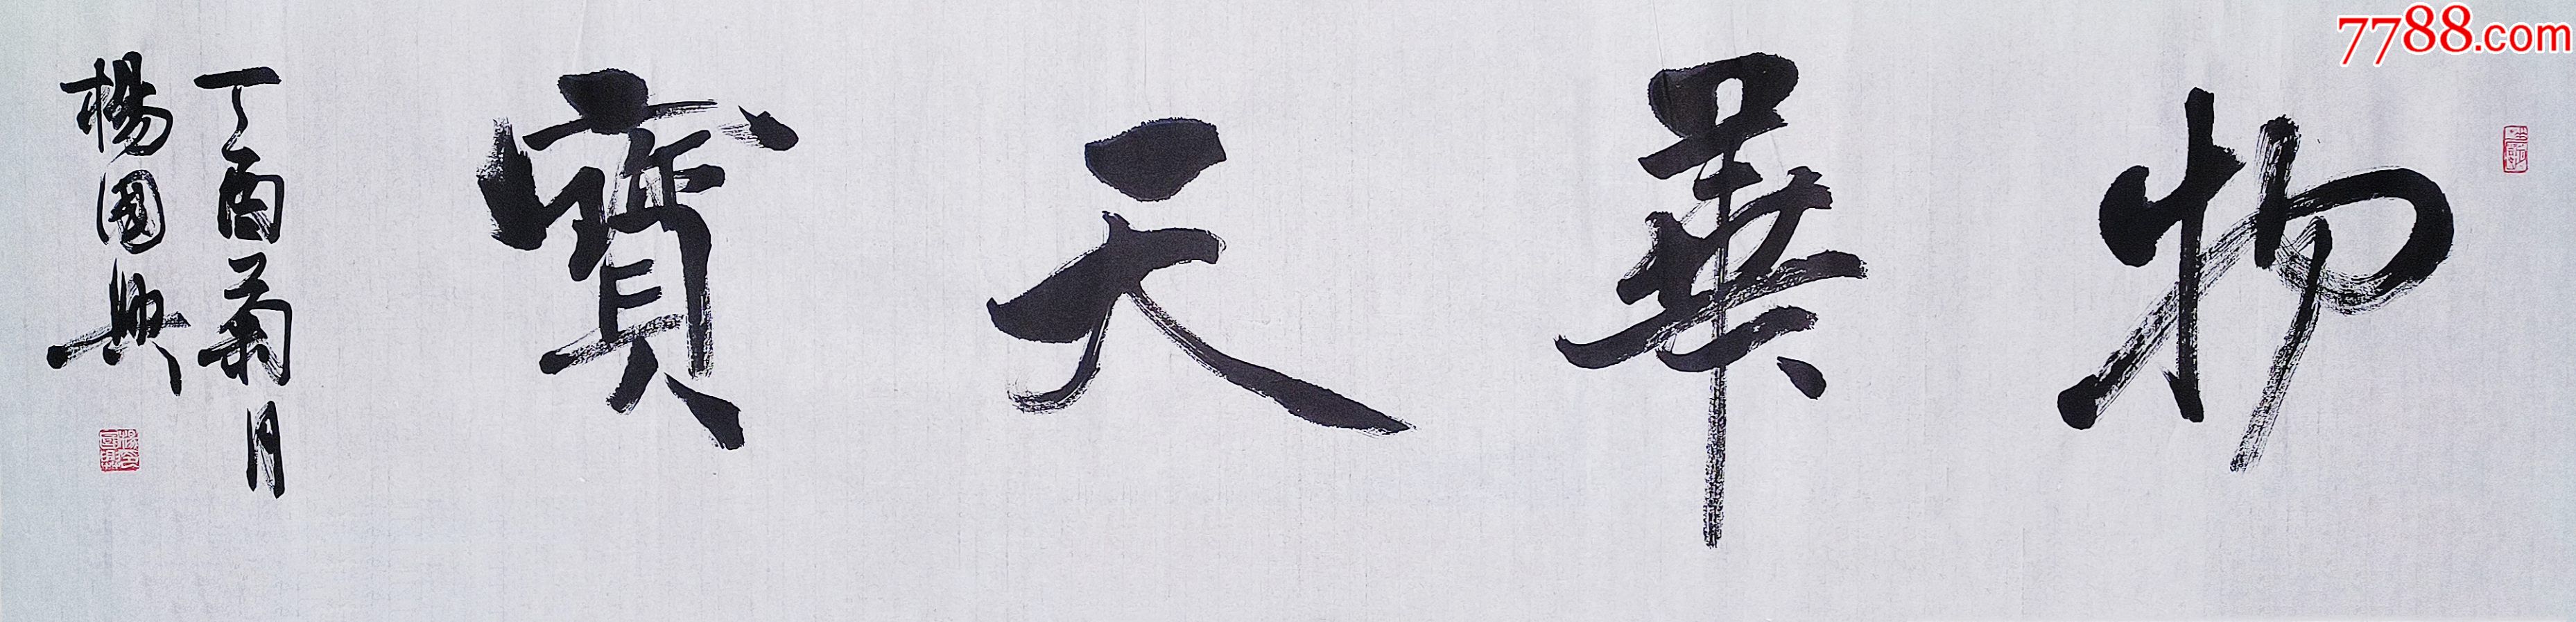 物華天寶
丁酉菊月
楊國興
7788.com